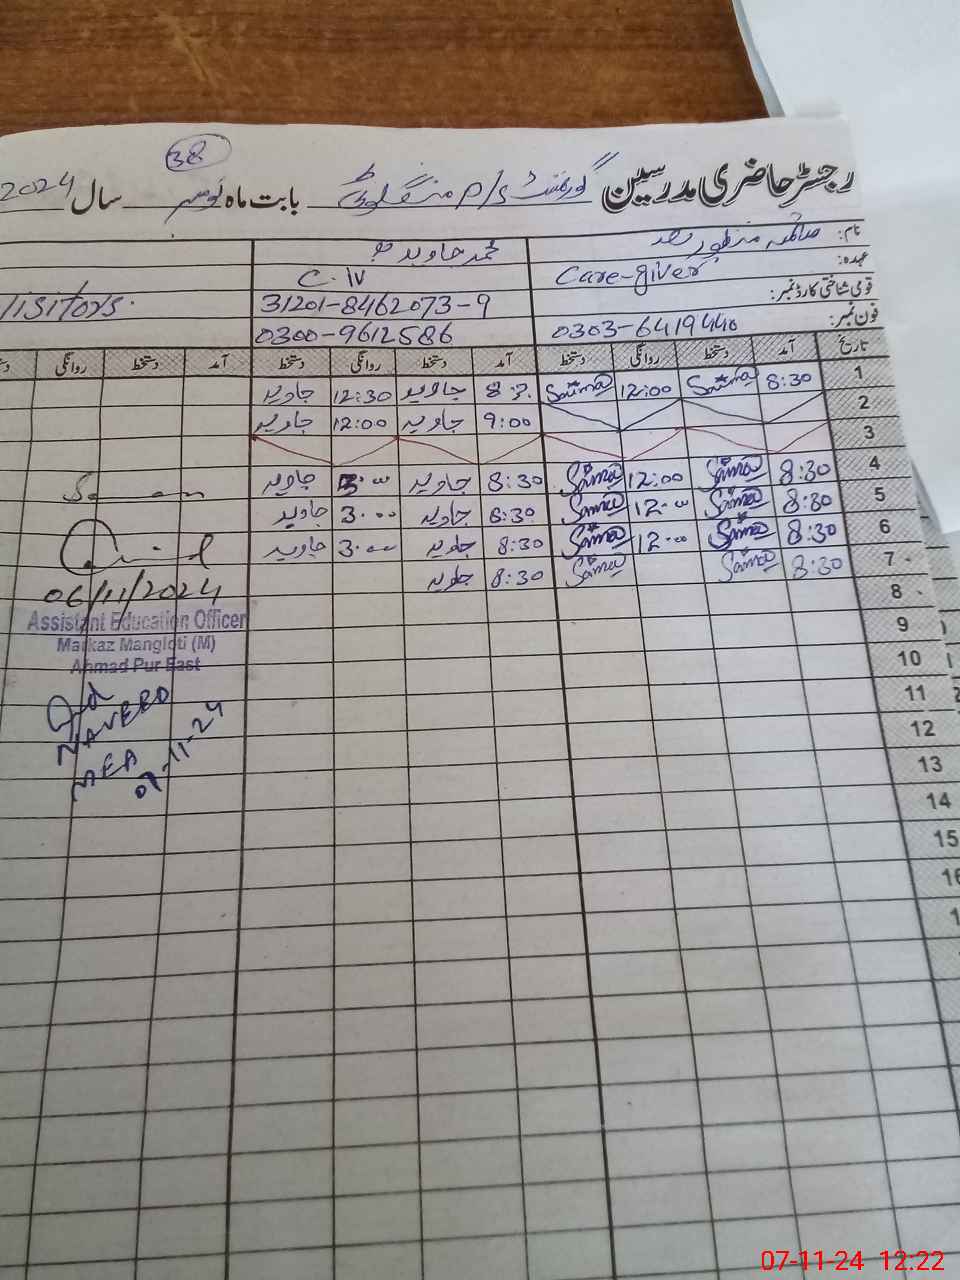 38
رجسٹر حاضری مدرسین گورنمنٹ P/S منگلوٹی بابت ماہ نومبر سال 2024
نام: صائمہ منظور محمد جاوید
عہدہ: Care-giver C.IV
قومی شناختی کارڈ نمبر: 31201-8462073-9 Visitors.
فون نمبر: 0303-6419440 0300-9612586
تاریخ آمد دستخط روانگی دستخط آمد دستخط روانگی دستخط آمد دستخط روانگی
1 8:30 Saima 12:00 Saima جاوید 12:30 جاوید
2 9:00 جاوید 12:00 جاوید
3
4 8:30 Saima 12:00 Saima 8:30 جاوید 3:00 جاوید
5 8:30 Saima 12:00 Saima 8:30 جاوید 3:00 جاوید
6 8:30 Saima 12:00 Saima 8:30 جاوید 3:00 جاوید
7 8:30 Saima Saima 8:30 جاوید
8
9
10
11
12
13
14
15
16
06/11/2024
Assistant Education Officer
Markaz Mangloti (M)
Ahmad Pur East
NAVEED
MEA
07-11-24
07-11-24 12:22